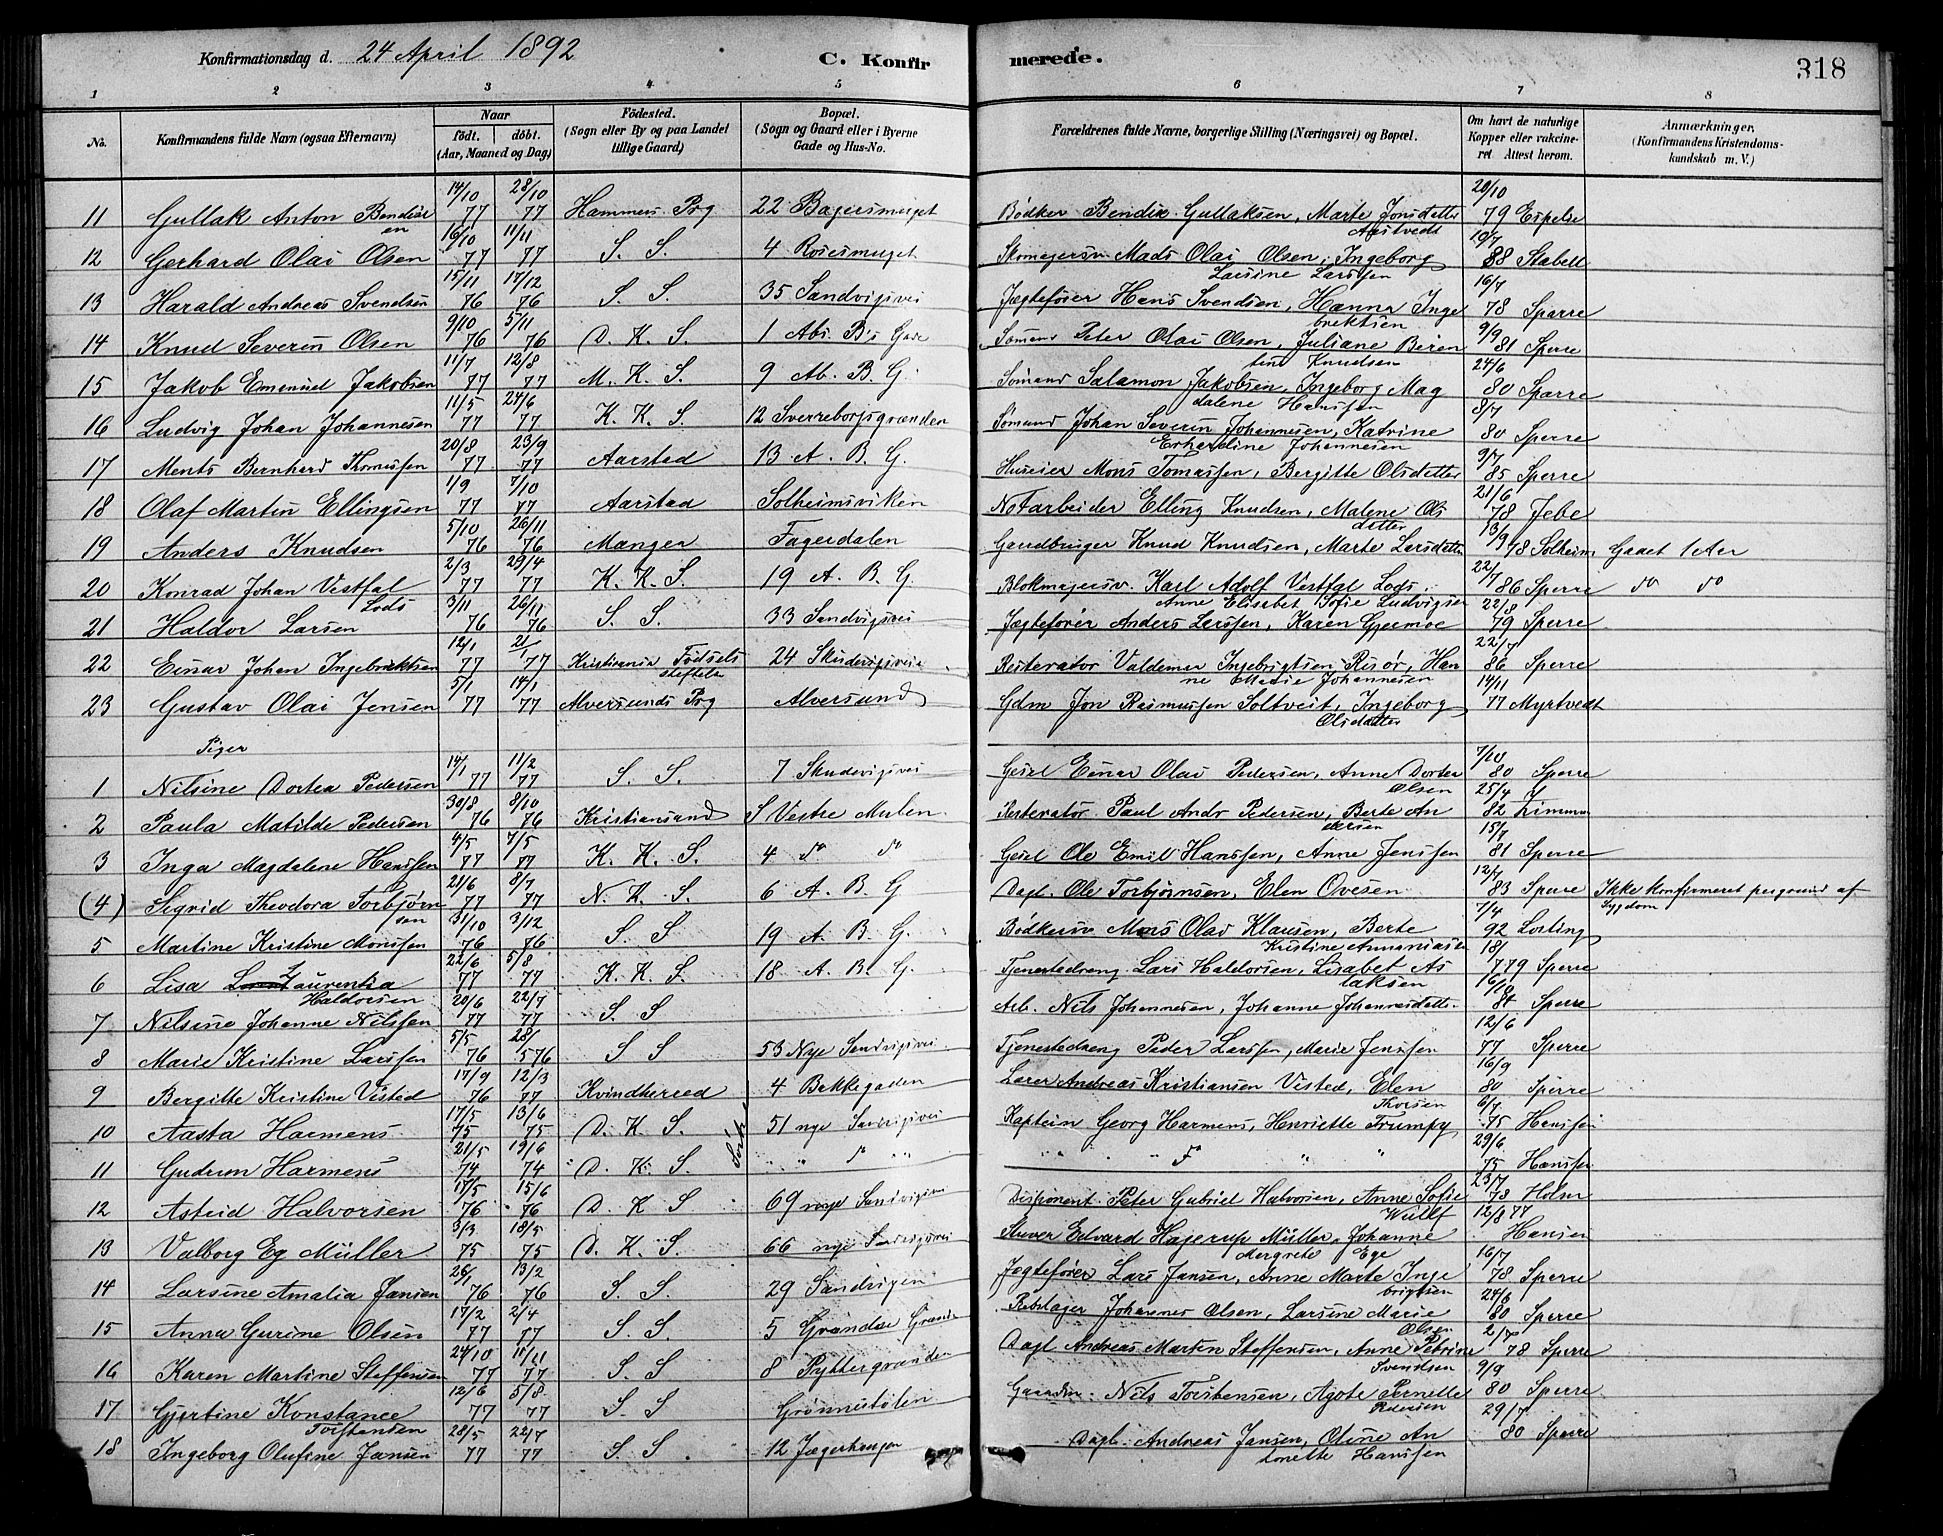 Konfirmationsdag d. 24 April 1892 C. Konfirmerede. 318
1 2 3 4 5 6 7 8
No. Konfirmandens fulde Navn (ogsaa Efternavn) Naar födt. döbt. (Aar, Maaned og Dag) Födested. (Sogn eller By og paa Landet tillige Gaard) Bopæl. (Sogn og Gaard eller i Byerne Gade og Hus-No. Forældrenes fulde Navne, borgerlige Stilling (Næringsvei) og Bopæl. Om havt de naturlige Kopper eller vakcineret Attest herom. Anmærkninger, (Konfirmandens Kristendomskundskab m. V.)
11 Gullak Anton Bendixen 14/10 77 28/10 77 Hammers Prg 22 Bødker Bendix Gullaksen, Marte Jonsdatter 20/10 79 Espelie
12 Gerhard Olai Olsen 16/10 77 11/11 77 S. S. 4 Rosesmuget Skomagersv Mads Olai Olsen, Ingeborg Larsine Larssen 19/7 88 Stabell
13 Harald Andreas Svendsen 15/11 76 17/12 76 S. S. 35 Sandvigsvei Jægtefører Hans Svendsen, Hanna Ingebrektsen 16/7 78 Sperre
14 Knud Severin Olsen 9/10 76 5/11 76 D. K. S. 1 Abs. B's Gade Sømand Peter Olai Olsen, Juliane Berentine Knudsen 9/9 81 Sperre
15 Jakob Emanuel Jakobsen 11/7 77 12/8 77 M. K. S. 9 Ab. B. G. Sømand Salamon Jakobsen, Ingeborg Magdalene Hanssen 24/6 80 Sperre
16 Ludvig Johan Johannesen 11/5 77 24/6 77 K. K. S. 12 Sverreborgsgrænden Sømand Johan Severin Johannesen, Katrine Johannesen 8/7 80 Sperre
17 Ments Bernhard Thomassen 20/8 77 23/9 77 Aarstad 13 A. B. G. Huseier Mons Tomassen, Bergitte Olsdatter 9/7 85 Sperre
18 Olaf Martin Ellingsen 1/9 77 7/10 77 Aarstad Solheimsviken Elling Knudsen, Malene Olsdatter 21/6 78 Jebe
19 Anders Knudsen 5/10 76 26/11 76 Manger Fagerdalen Gaardbruger Knud Knudsen, Marte Larsdatter 13/9 78 Solheim Gaaet 1 Aar
20 Konrad Johan Vestfal Lods 2/3 77 29/4 77 K. K. S. 19 A. B. G. Blokmagersv. Karl Adolf Vestfal Lods, Anne Elisabet Sofie Ludvigsen 22/7 86 Sperre do do
21 Haldor Larsen 3/11 76 26/11 76 S. S. 33 Sandvigsvei Jægtefører Anders Larssen, Karen Gjermoe 22/8 79 Sperre
22 Einar Johan Ingebrektsen 12/1 77 21/ 77 Kristiania Fødselsstiftelse 24 Skudevigsveien Resterator Valdemar Ingebrigtsen Risør, Hanne Marie Johannesen 22/7 86 Sperre
23 Gustav Olai Jensen 5/1 77 14/1 77 Alversunds Prg Alversund Gdm Jon Rasmussen Soltveit, Ingeborg Olsdatter 14/11 77 Myrtvedt
Piger
1 Nilsine Dortea Pedersen 14/1 77 11/2 77 S. S. 7 Skudevigsvei Gesel Einar Olai Pedersen, Anne Dortea Olsen 7/10 80 Sperre
2 Paula Matilde Pedersen 30/8 76 8/10 76 Kristiansund Vestre Mulen Resterator Paul Andr Pedersen, Berte Andersen 25/4 82
3 Inga Magdalene Hanssen 4/5 77 7/5 77 K. K. S. 4 do do Gesel Ole Emil Hanssen, Anne Jenssen 15/7 81 Sperre
(4) Sigrid Theodora Torbjørnsen 21/6 77 8/7 77 N. K. S. 6 A. B. G Dagl. Ole Torbjørnsen, Elen Ovesen 12/7 83 Sperre Ikke konfirmeret paagrund af Sygdom
5 Martine Kristine Monssen 31/10 76 3/12 76 S. S 19 A. B. G. Bødkersv Mons Olav Klausen, Berte Kristine Annaniasen 7/4 92 Losting
6 Lisa Laurentia Haldorsen 22/6 77 5/8 77 K. K. S. 18 A. B. G Tjenestedreng Lars Haldorsen, Lisabet Aslaksen 18/7 79 Sperre
7 Nilsine Johanne Nilssen 20/6 77 22/7 77 S. S Arb. Nils Johannesen, Johanne Johannesdatter 16/10 84 Sperre
8 Marie Kristine Larssen 5/5 76 28/5 76 S S 53 Nye Sandvigsvei Tjenestedreng Peder Larssen, Marie Jenssen 12/6 77 Sperre
9 Bergitte Kristine Visted 17/9 76 12/3 77 Kvindherred 4 Bekkegaden Lærer Andreas Kristiansen Visted, Elen Thorsen 16/9 80 Sperre
10 Aasta Harmens 17/5 75 13/6 75 D. K. S. 51 nye Sandvigsvei Kaptein Georg Harmens, Henriette Trumpy 6/7 75 Hanssen
11 Gudrun Harmens 21/5 74 19/6 74 D. K. S " " do " " " " do " " 29/6 75 Hanssen
12 Astrid Halvorsen 17/5 76 15/6 76 D. K S 69 nye Sandvigsvei Disponent Peter Gabriel Halvorsen, Anne Sofie Wulff 23/7 78 Holm
13 Valborg Eg Müller 3/3 75 18/5 75 D. K. S. 66 nye Sandvigsvei Stuver Edvard Hagerup Müller, Johanne Margrete Ege 12/8 77 Hansen
14 Larsine Amalia Jansen 26/1 76 13/2 76 S. S. 29 Sandvigen Jægtefører Lars Jansen, Anne Marte Ingebrigtsen 16/7 78 Sperre
15 Anna Gurine Olsen 17/2 77 2/4 77 S. S. 5 Rebslager Johannes Olsen, Larsine Marie Olsen 24/6 80 Sperre
16 Karen Martine Steffensen 24/10 77 11/11 77 S. S 8 Ryttergrænden Dagl Andreas Martin Steffensen, Anne Petrine Svendsen 2/7 78 Sperre
17 Gjertine Konstance Torstensen 12/6 77 5/8 77 S. S Grønnestølen Nils Torstensen, Agote Pernelle Pedersen 9/9 80 Sperre
18 Ingeborg Olufine Jansen 28/5 77 22/7 77 S. S. 12 Jægerhaugen Dagl. Andreas Jansen, Oline Antonette Hanssen 29/7 80 Sperre